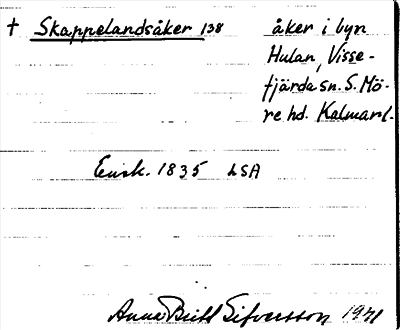 † Skappelandsåker 138 åker i byn
Hulan, Visse-
fjärda sn. S. Mö-
re hd. Kalmar l.
Ensk. 1835 LSA
Anna Britt Sifversson 1971